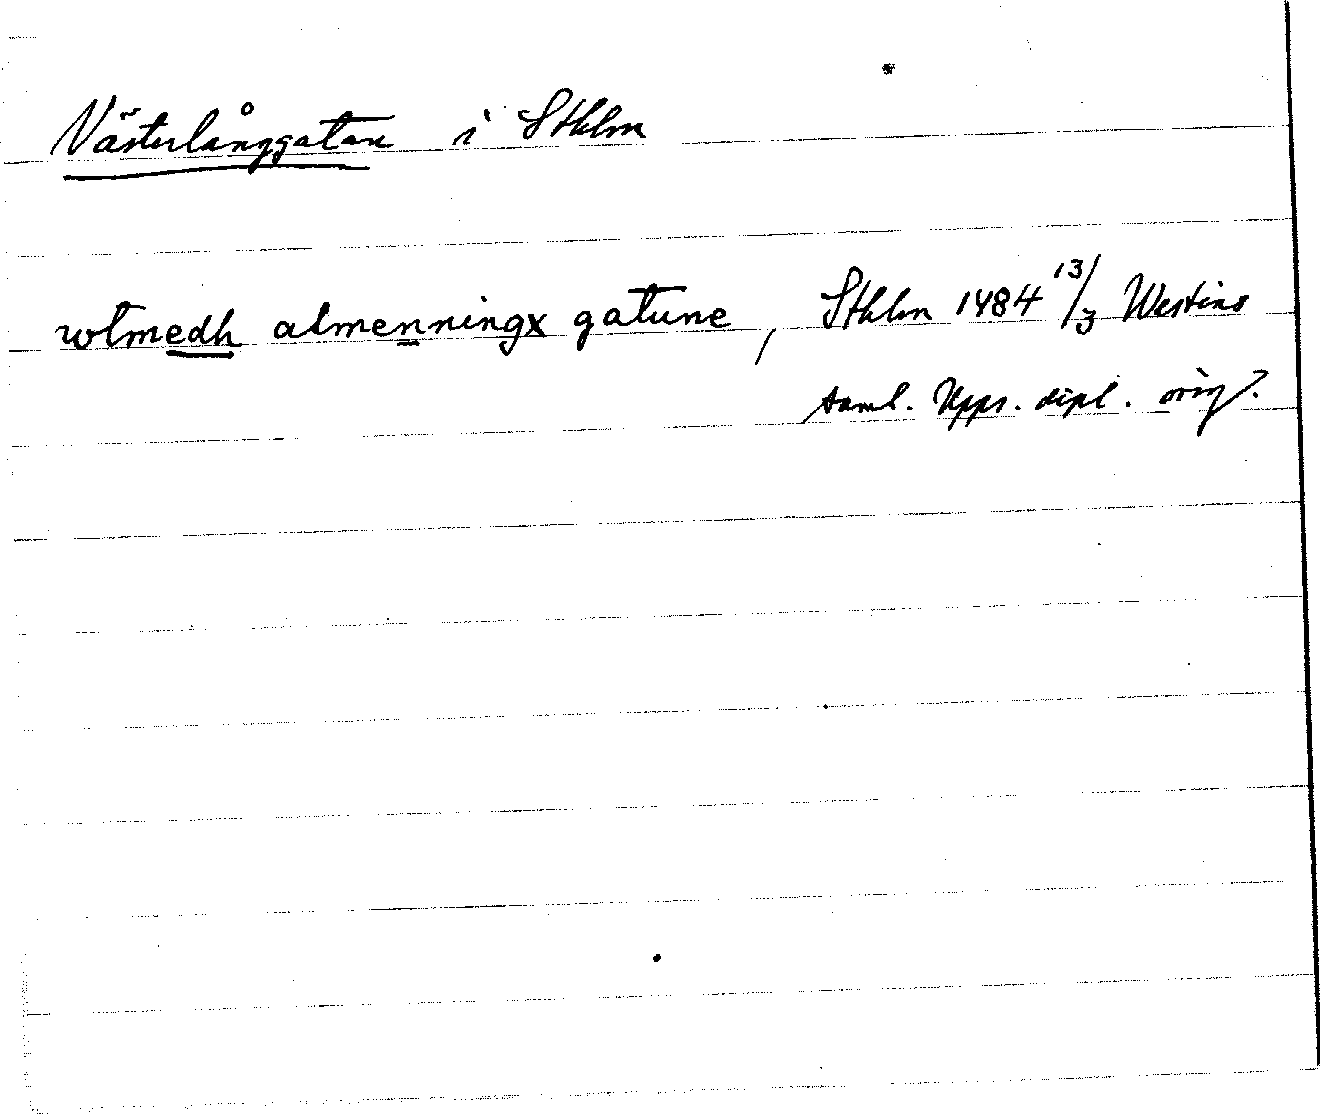 Västerlånggatan i Sthlm
wtmedh almenningx gatune, Sthlm 1484 13/3 Westins
saml. Upps. dipl. orig.